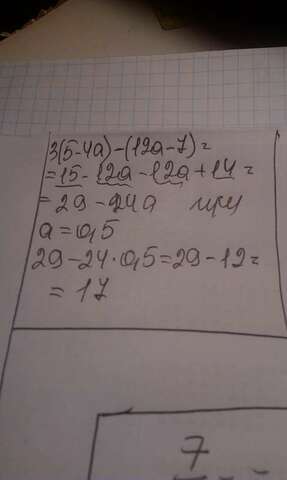 3(5-4a)-(12a-7)=
=15-12a-12a+14=
=29-24a при
a=0,5
29-24·0,5=29-12=
=17
7